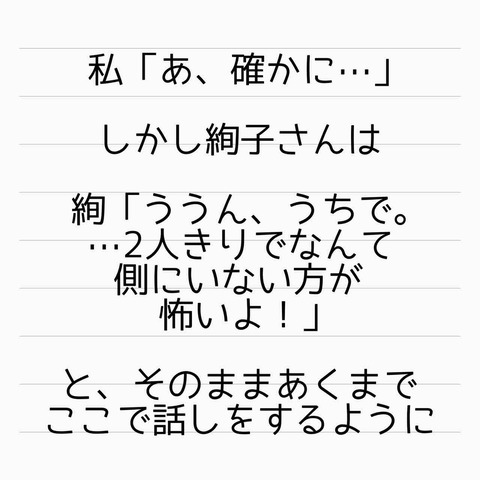 私「あ、確かに…」
しかし絢子さんは
絢「ううん、うちで。
…2人きりでなんて
側にいない方が
怖いよ！」
と、そのままあくまで
ここで話しをするように